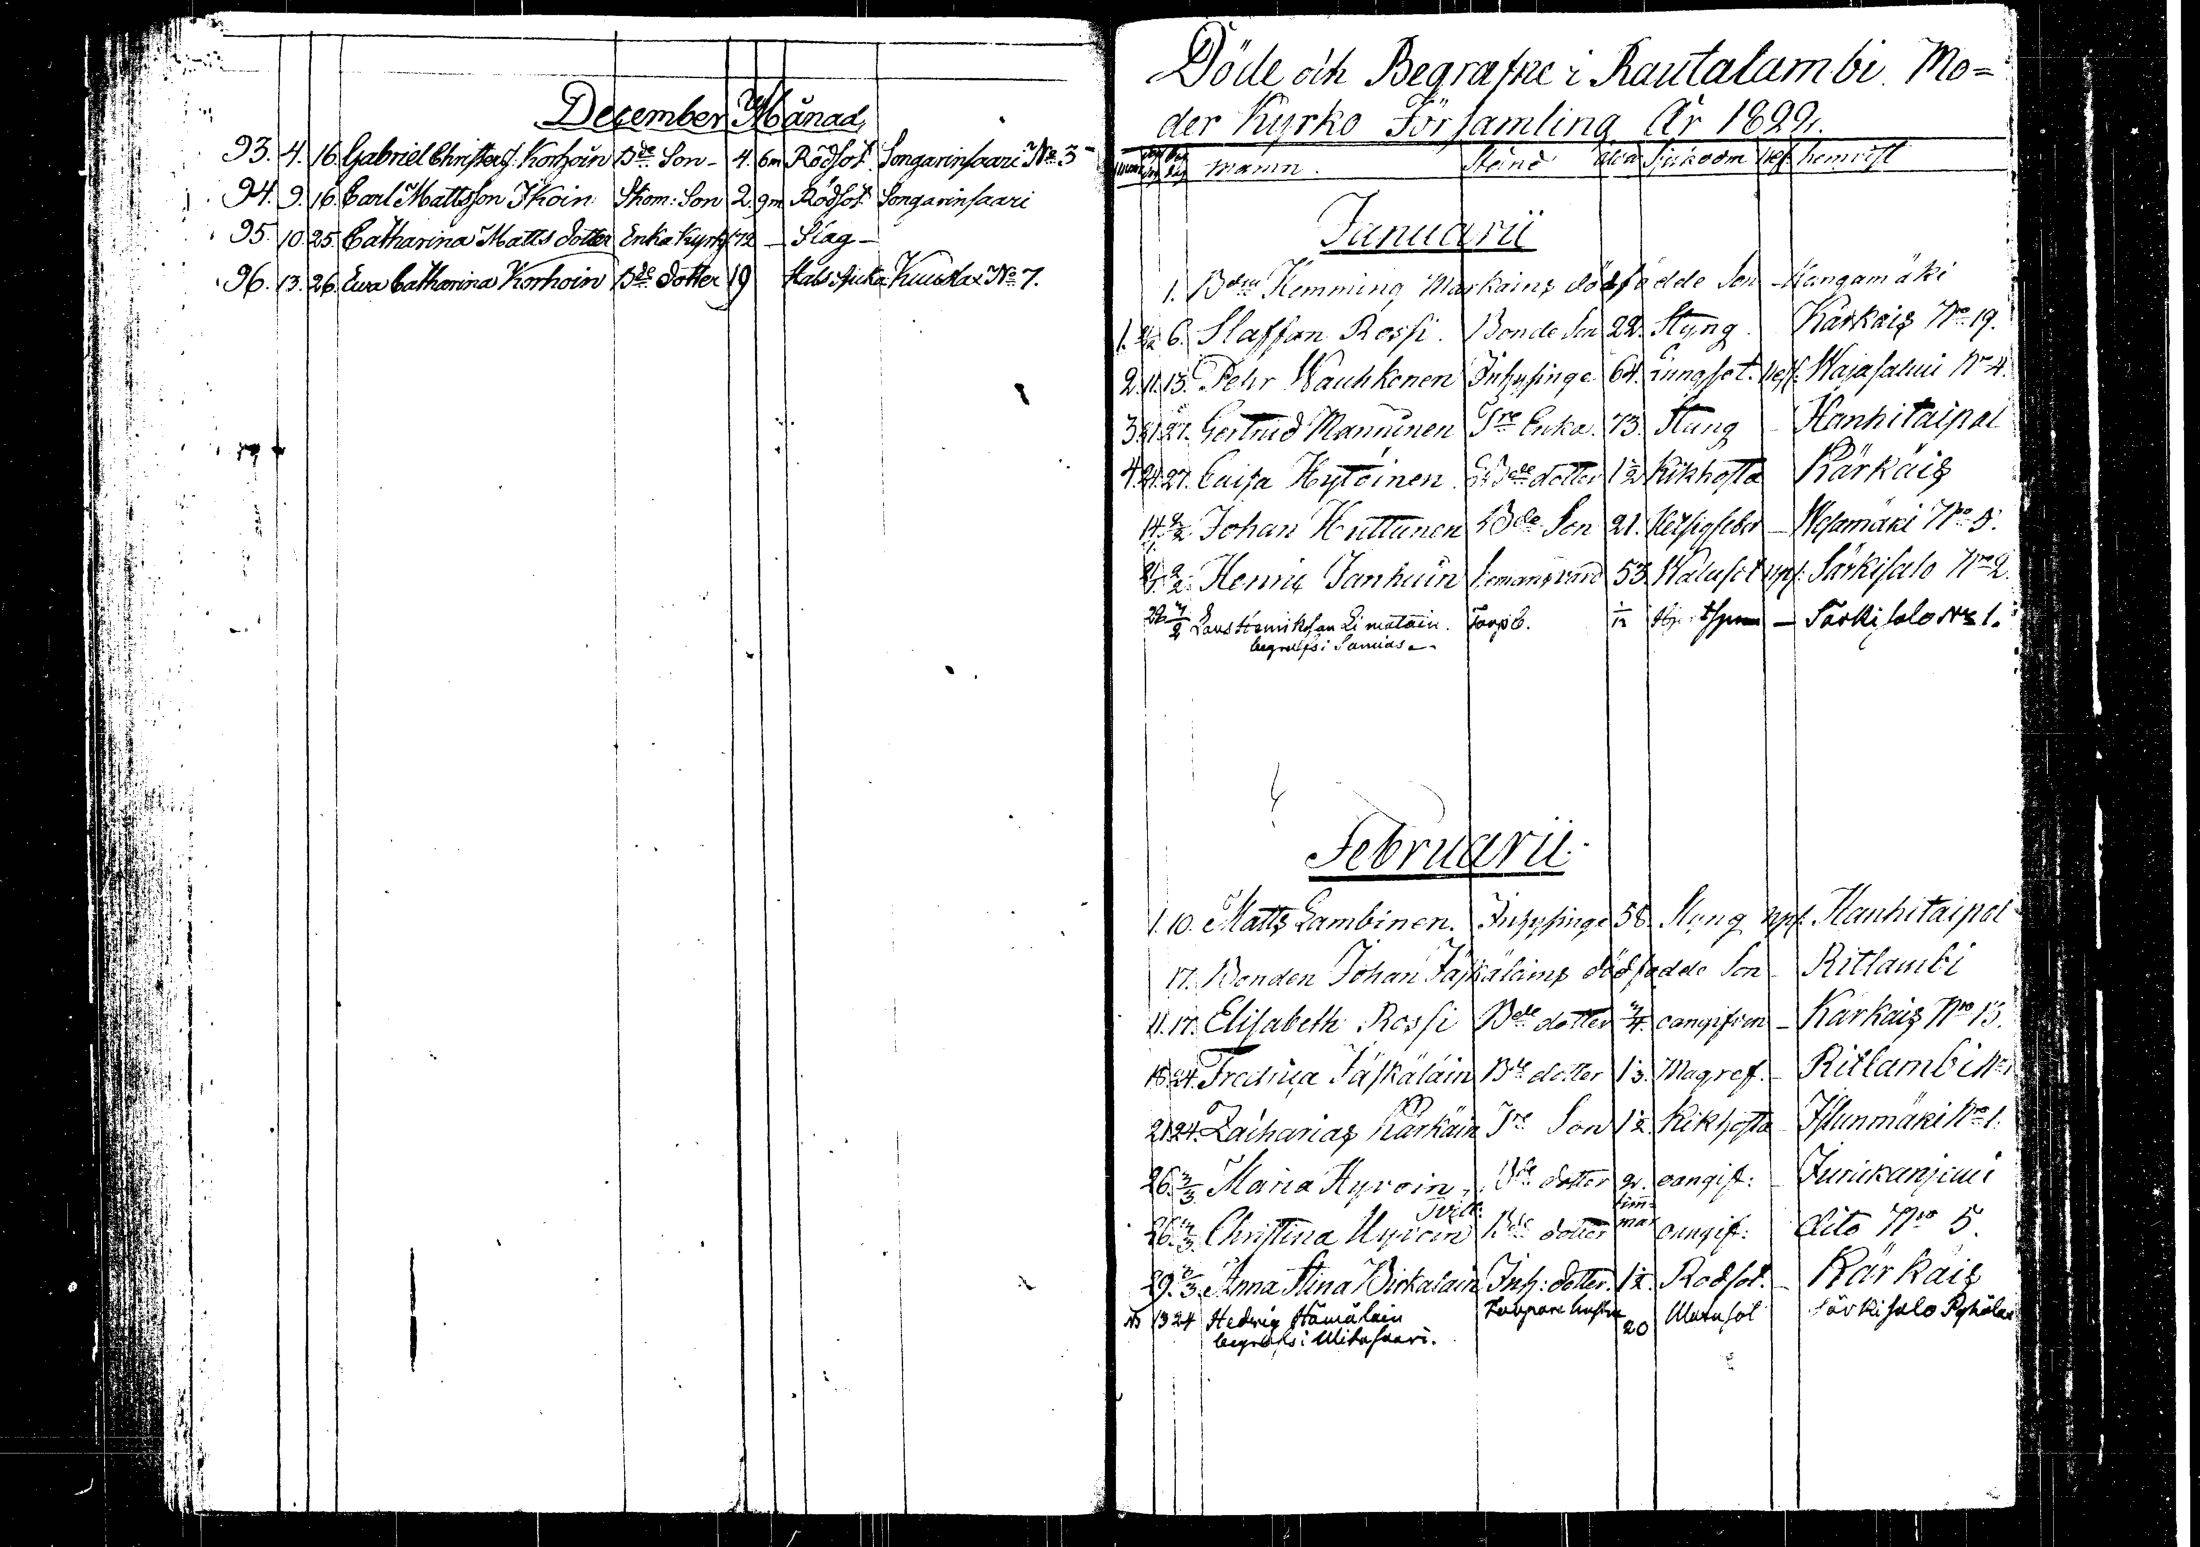 December Månad
93. 4. 16. Gabriel Christers: Korhoin Bde Son - 4. 6m Rödsot. Songarinsaari No. 3
94. 9. 16. Carl Mattsson Ikoin Skom: Son 2. 9m Rödsot. Songarinsaari
95. 10. 25. Catharina Matts dotter Enka Kyrkf 72 - Slag -
96. 13. 26. Ewa Catharina Korhoin Bde dotter 19 Hals sjuka Kuuslax No 7.
Döde och Begrafne i Rautalambi Mo=
der Kyrko Församling År 1822.
Namn. Stånd ålder Sjukdom hemvist
Januarii
1. Bdn Hemming Markains dödfödde Son - Kangamäki
1. 6. Staffan Rossi. Bonde Son 22. Styng. Kärkais No 19.
2. 11. 13. Pehr Wauhkonen Inhysinge 64. Lungsot. Wajasalmi No 4.
3. 21. 27. Gertrud Manninen Enka. 73. Styng Hanhitaipal
4. 21. 27. Caisa Hytöinen Bde dotter 1½ Kikhosta Kärkäis
14. 2/2 Johan Huttunen Bde Son 21. - Wesamäki No 5.
2/2 Henric Janhuin 53 Watusot Särkisalo No 2.
2/2 Lars Henriksson Limatain. Torp S. - Särkisalo No 1.
begrafs i
Februarii
1. 10. Matts Lambinen. Inhysinge 58. Styng Hanhitaipal
17. Bonden Johan Jäskälains dödfödde Son - Ritlambi
11. 17. Elisabeth Rossi Bde dotter oangifven - Kärkais No 13.
18. 24. Jäskäläin Bde dotter 1/3. Magref. - Ritlambi No 1
21. 24. Zacharias Kärkäin Son 1½. Kikhosta Istunmäki No 1.
26. 3/3 Maria Hyvoin Bde dotter 2. oangif: -
tim=
26. 3/3. Christina Hyvoin Bde dotter mar oangif: dito No 5.
29. 3/3. Anna Stina Pirkalain Inh: dotter. 1½. Rodsot. - Kärkäis
13 24 Hedvig Hämäläin hustru 20 Särkisalo
begrafs i